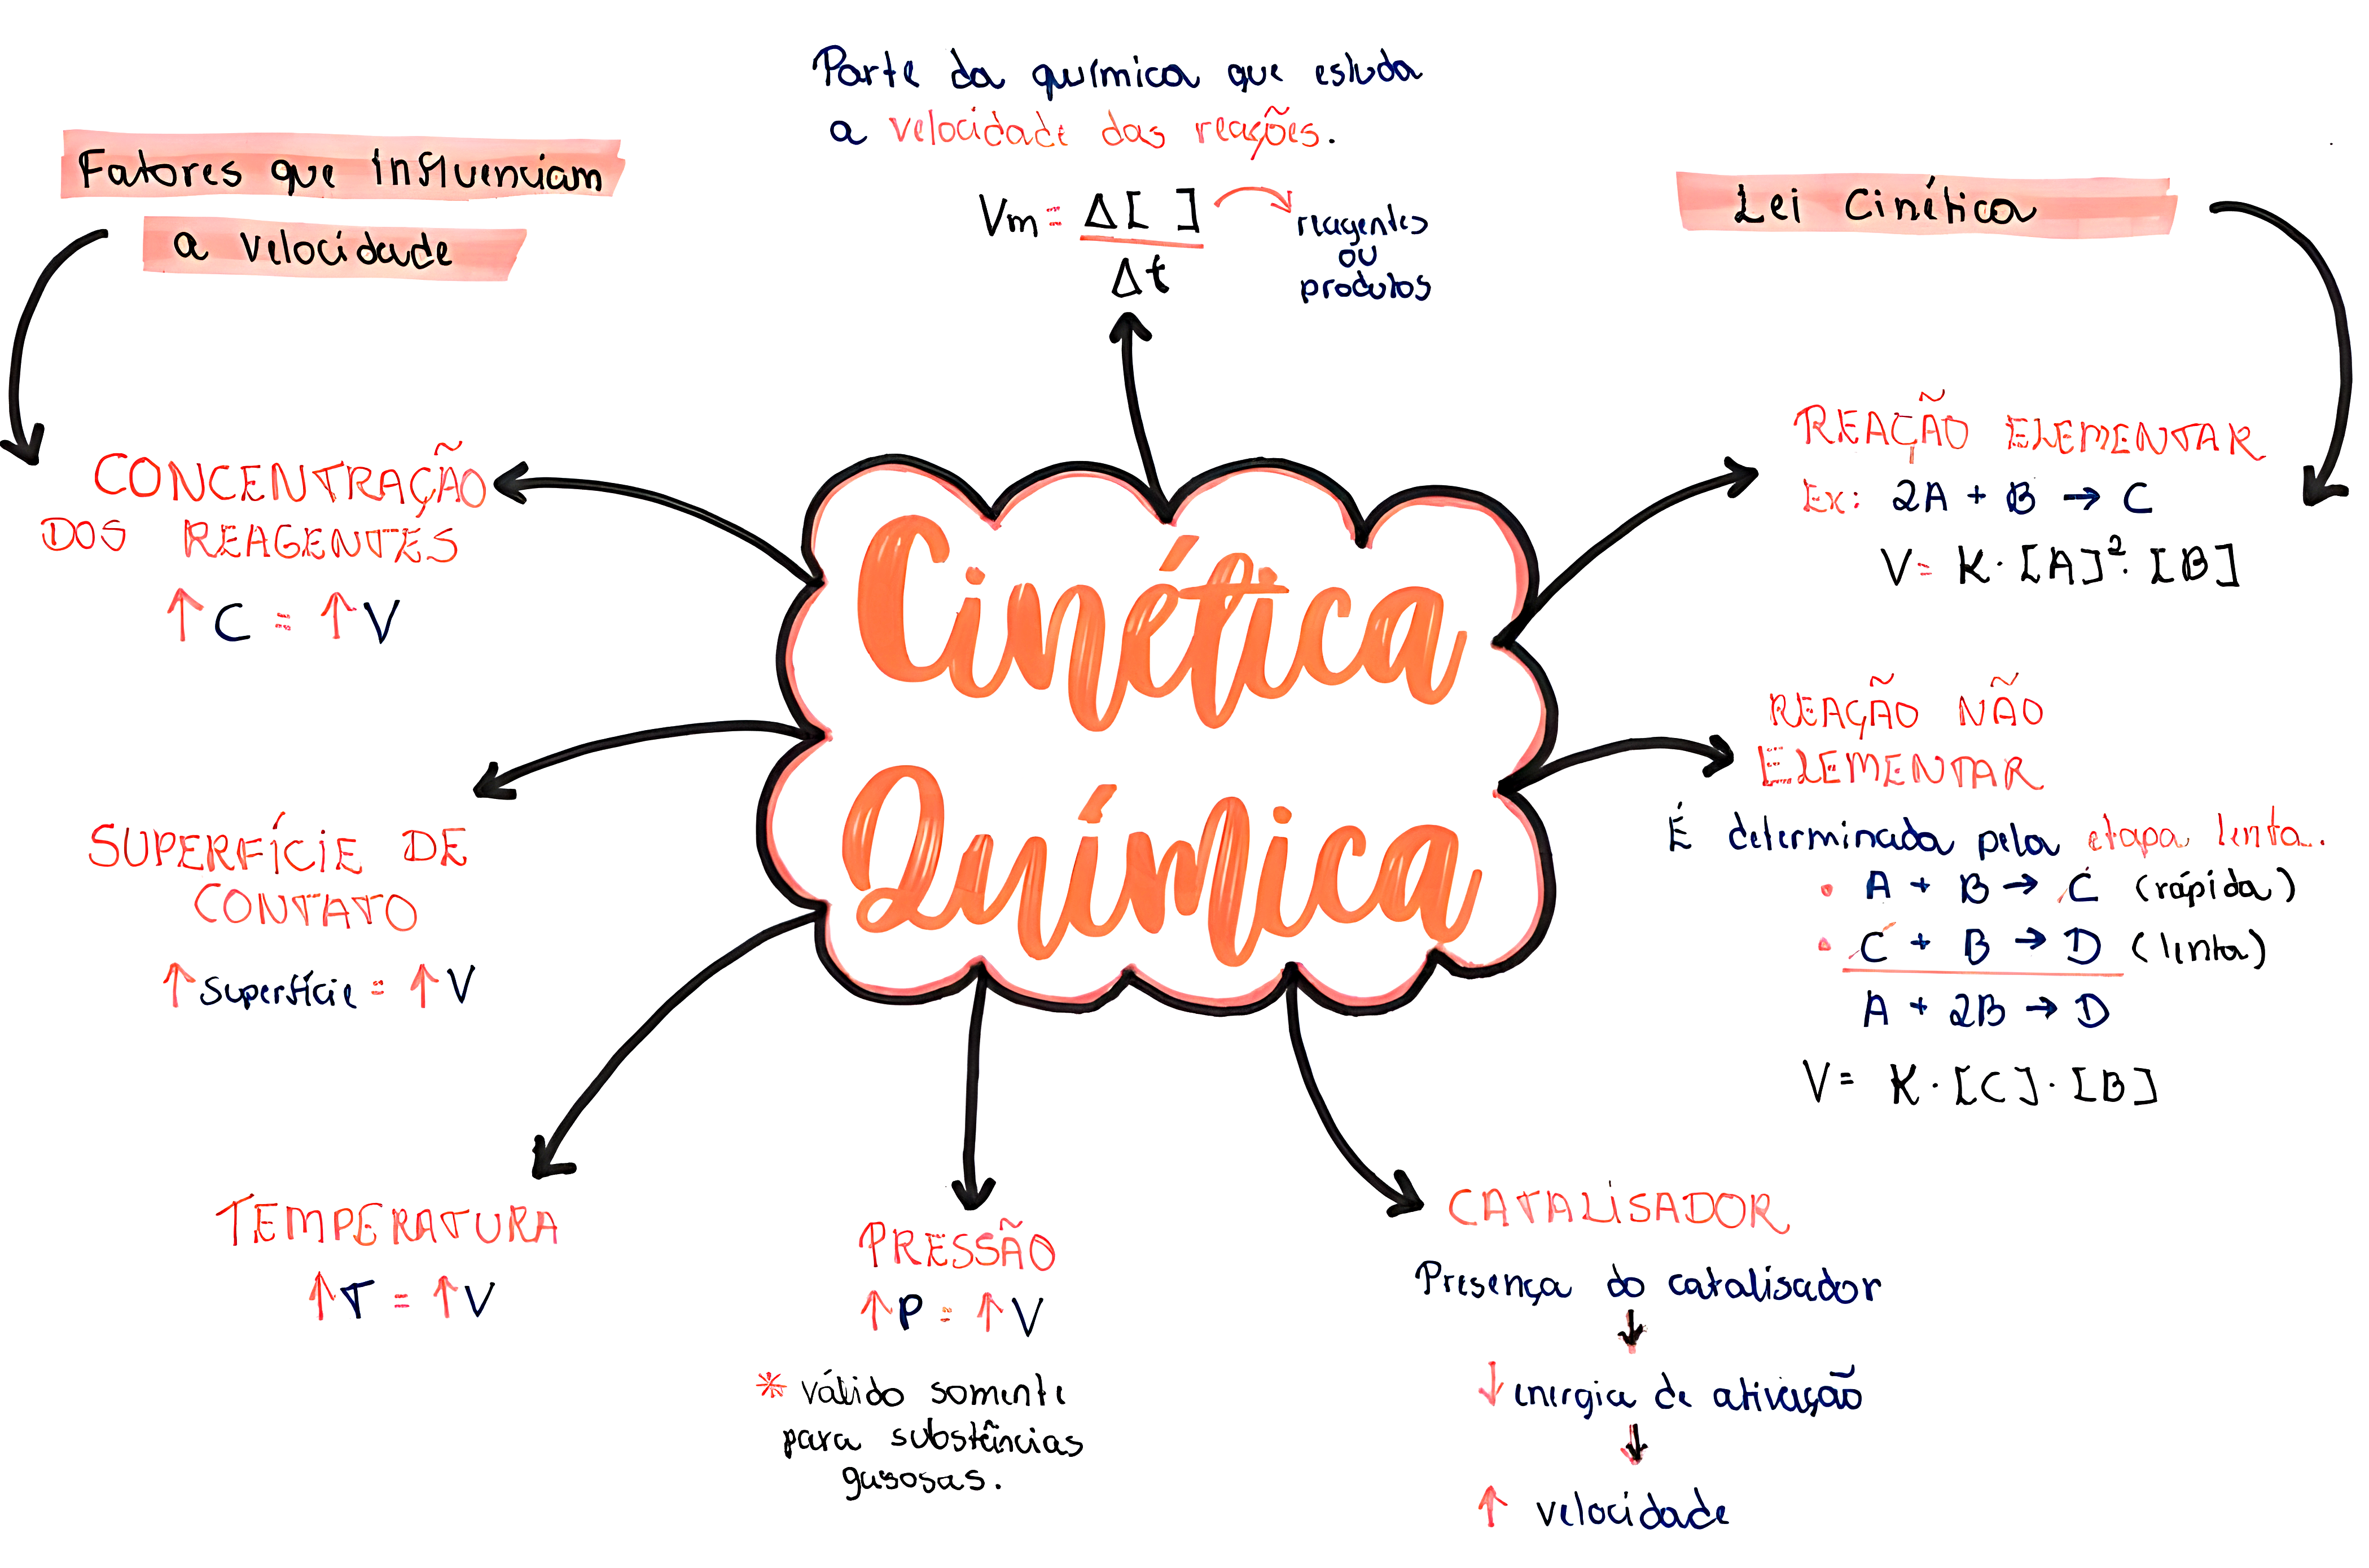 Parte da química que estuda
a velocidade das reações.
Vm = Δ[ ]
Δt
reagentes
ou
produtos
Fatores que influenciam
a velocidade
CONCENTRAÇÃO
DOS REAGENTES
↑ C = ↑ V
SUPERFÍCIE DE
CONTATO
↑ superfície = ↑ V
TEMPERATURA
↑ T = ↑ V
Cinética
Química
PRESSÃO
↑ P = ↑ V
* válido somente
para substâncias
gasosas.
CATALISADOR
Presença do catalisador
↓
↓ energia de ativação
↓
↑ velocidade
Lei Cinética
REAÇÃO ELEMENTAR
Ex: 2A + B → C
V = K · [A]² · [B]
REAÇÃO NÃO
ELEMENTAR
É determinada pela etapa lenta.
• A + B → C (rápida)
• C + B → D (lenta)
A + 2B → D
V = K · [C] · [B]